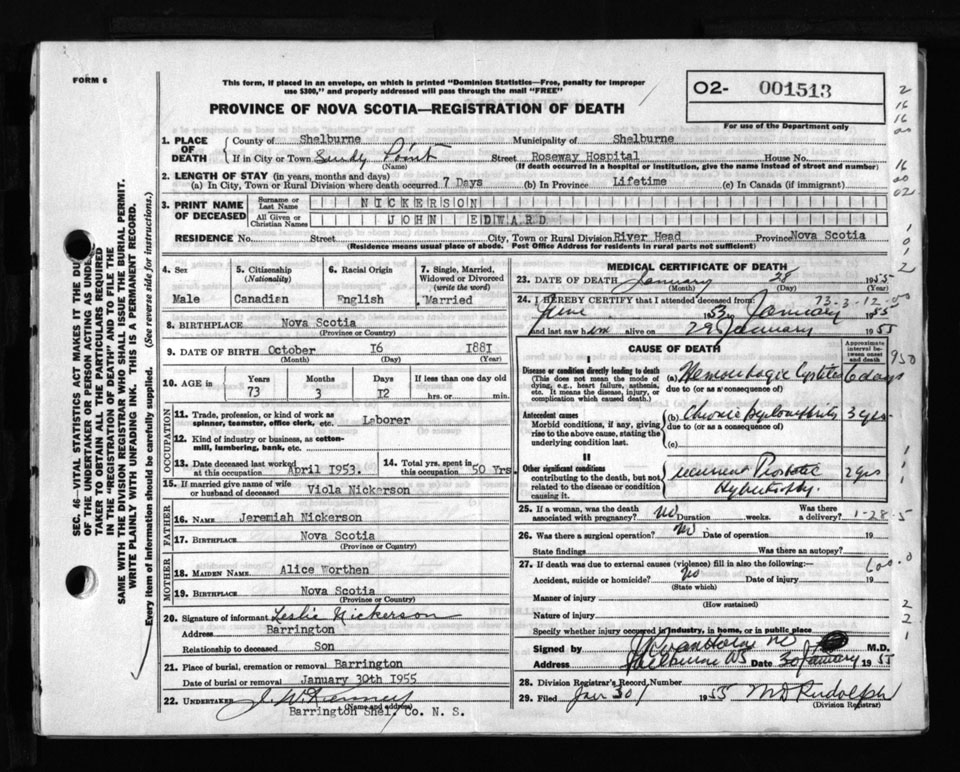 FORM 6
This form, if placed in an envelope, on which is printed "Dominion Statistics—Free, penalty for improper
use $300," and properly addressed will pass through the mail "FREE"
PROVINCE OF NOVA SCOTIA—REGISTRATION OF DEATH
O2- 001513
For use of the Department only
SEC. 46—VITAL STATISTICS ACT MAKES IT THE DU
OF THE UNDERTAKER OR PERSON ACTING AS UNDE
TAKER TO OBTAIN ALL THE PARTICULARS REQUIRED
IN THE "REGISTRATION OF DEATH" AND TO FILE THE
SAME WITH THE DIVISION REGISTRAR WHO SHALL ISSUE THE BURIAL PERMIT.
WRITE PLAINLY WITH UNFADING INK. THIS IS A PERMANENT RECORD.
Every item of information should be carefully supplied. (See reverse side for instructions.)
1. PLACE OF DEATH
County of Shelburne Municipality of Shelburne
If in City or Town Sandy Point Street Roseway Hospital House No.
(Name) (If death occurred in a hospital or institution, give the name instead of street and number)
2. LENGTH OF STAY (in years, months and days)
(a) In City, Town or Rural Division where death occurred 7 Days (b) In Province Lifetime (c) In Canada (if immigrant)
3. PRINT NAME OF DECEASED
Surname or Last Name NICKERSON
All Given or Christian Names JOHN EDWARD
RESIDENCE No. Street City, Town or Rural Division River Head Province Nova Scotia
(Residence means usual place of abode. Post Office Address for residents in rural parts not sufficient)
4. Sex
Male
5. Citizenship
(Nationality)
Canadian
6. Racial Origin
English
7. Single, Married,
Widowed or Divorced
(write the word)
Married
8. BIRTHPLACE Nova Scotia
(Province or Country)
9. DATE OF BIRTH October 16 1881
(Month) (Day) (Year)
10. AGE in
Years Months Days If less than one day old
73 3 12 hrs. or min.
OCCUPATION
11. Trade, profession, or kind of work as
spinner, teamster, office clerk, etc. Laborer
12. Kind of industry or business, as cotten-
mill, lumbering, bank, etc.
13. Date deceased last worked
at this occupation April 1953.
14. Total yrs. spent in
this occupation 50 Yrs.
15. If married give name of wife
or husband of deceased Viola Nickerson
FATHER
16. NAME Jeremiah Nickerson
17. BIRTHPLACE Nova Scotia
(Province or Country)
MOTHER
18. MAIDEN NAME Alice Worthen
19. BIRTHPLACE Nova Scotia
(Province or Country)
20. Signature of informant Leslie Nickerson
Address Barrington
Relationship to deceased Son
21. Place of burial, cremation or removal Barrington
Date of burial or removal January 30th 1955
22. UNDERTAKER
(Name and address)
Barrington Shel. Co. N. S.
MEDICAL CERTIFICATE OF DEATH
23. DATE OF DEATH January 28 1955
(Month) (Day) (Year)
24. I HEREBY CERTIFY that I attended deceased from:
73-3-12-
June 1953 January 1955
and last saw him alive on 29 January 1955
CAUSE OF DEATH
Approximate
interval be-
tween onset
and death
950
I
Disease or condition directly leading to death
(This does not mean the mode
of dying, e.g., heart failure, asthenia,
etc. It means the disease, injury, or
complication which caused death.)
(a) Hemorrhagic Cystitis 6 days
due to (or as a consequence of)
Antecedent causes
Morbid conditions, if any, giving
rise to the above cause, stating the
underlying condition last.
(b) Chronic Pyelonephritis 3 yrs
due to (or as a consequence of)
(c)
II
Other significant conditions
contributing to the death, but not
related to the disease or condition
causing it.
recurrent Prostatic 2 yrs
Hypertrophy.
25. If a woman, was the death
associated with pregnancy? No Duration weeks.
Was there
a delivery?
1-28-5
26. Was there a surgical operation? No Date of operation 19
State findings Was there an autopsy?
27. If death was due to external causes (violence) fill in also the following:
Accident, suicide or homicide? No Date of injury 19
(State which)
Manner of injury
(How sustained)
Nature of injury
Specify whether injury occurred in industry, in home, or in public place
Signed by M.D.
Address Shelburne NS Date 30 January 1955
28. Division Registrar's Record Number
29. Filed Jan 30 1955 M D Rudolph
(Division Registrar)